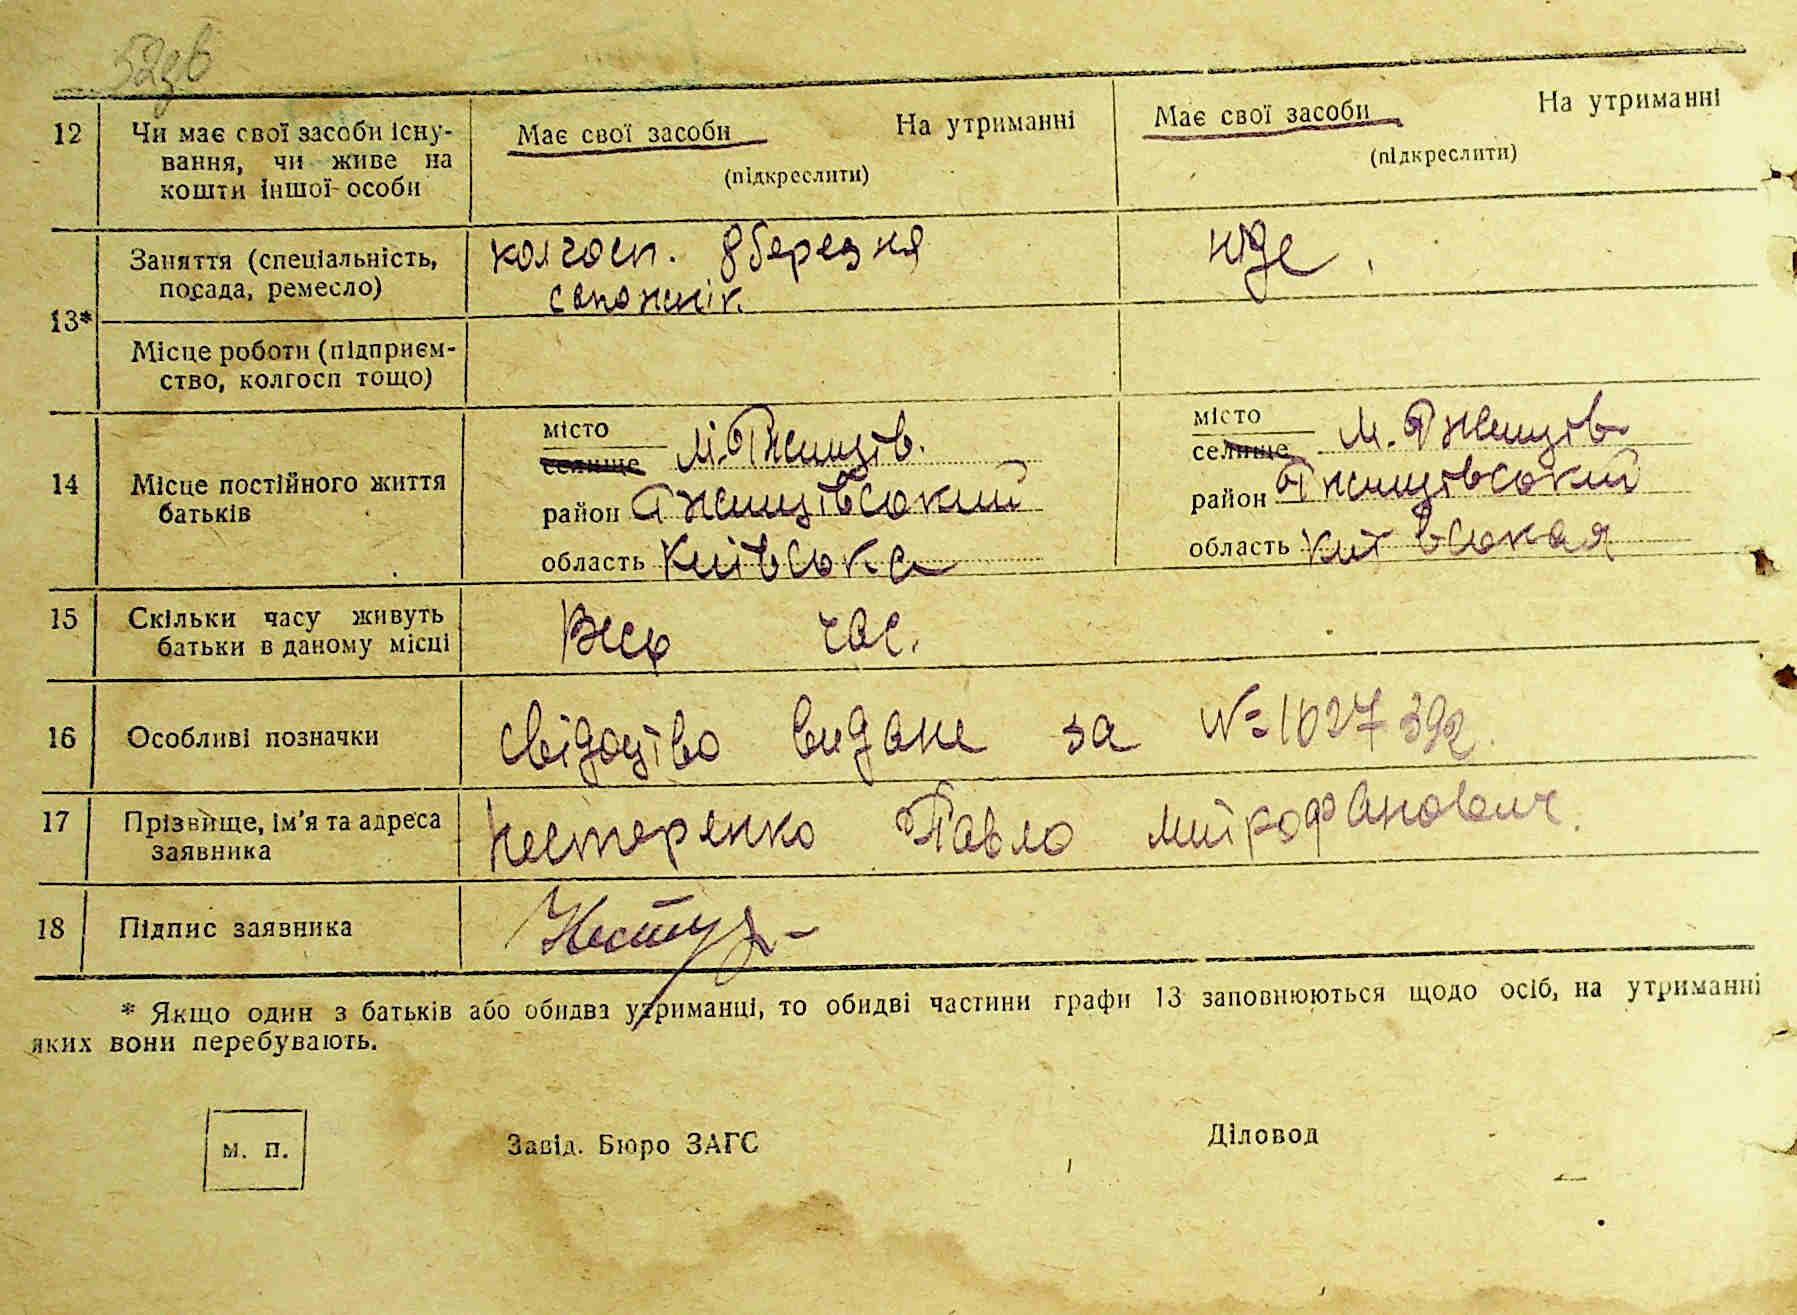 52зв
12 Чи має свої засоби існу- Має свої засоби На утриманні Має свої засоби На утриманні
вання, чи живе на (підкреслити) (підкреслити)
кошти іншої особи
13* Заняття (спеціальність, колгосп. 8 березня ніде.
посада, ремесло) сапожнік.
Місце роботи (підприєм-
ство, колгосп тощо)
14 Місце постійного життя батьків
місто
селище м. Ржищів.
район Ржищівський
область Київська
місто
селище м. Ржищів
район Ржищівський
область Київськая
15 Скільки часу живуть Весь час.
батьки в даному місці
16 Особливі позначки свідоцтво видане за №1027392.
17 Прізвище, ім'я та адреса Нестеренко Павло Митрофанович.
заявника
18 Підпис заявника
* Якщо один з батьків або обидва утриманці, то обидві частини графи 13 заповнюються щодо осіб, на утриманні
яких вони перебувають.
м. п. Завід. Бюро ЗАГС Діловод